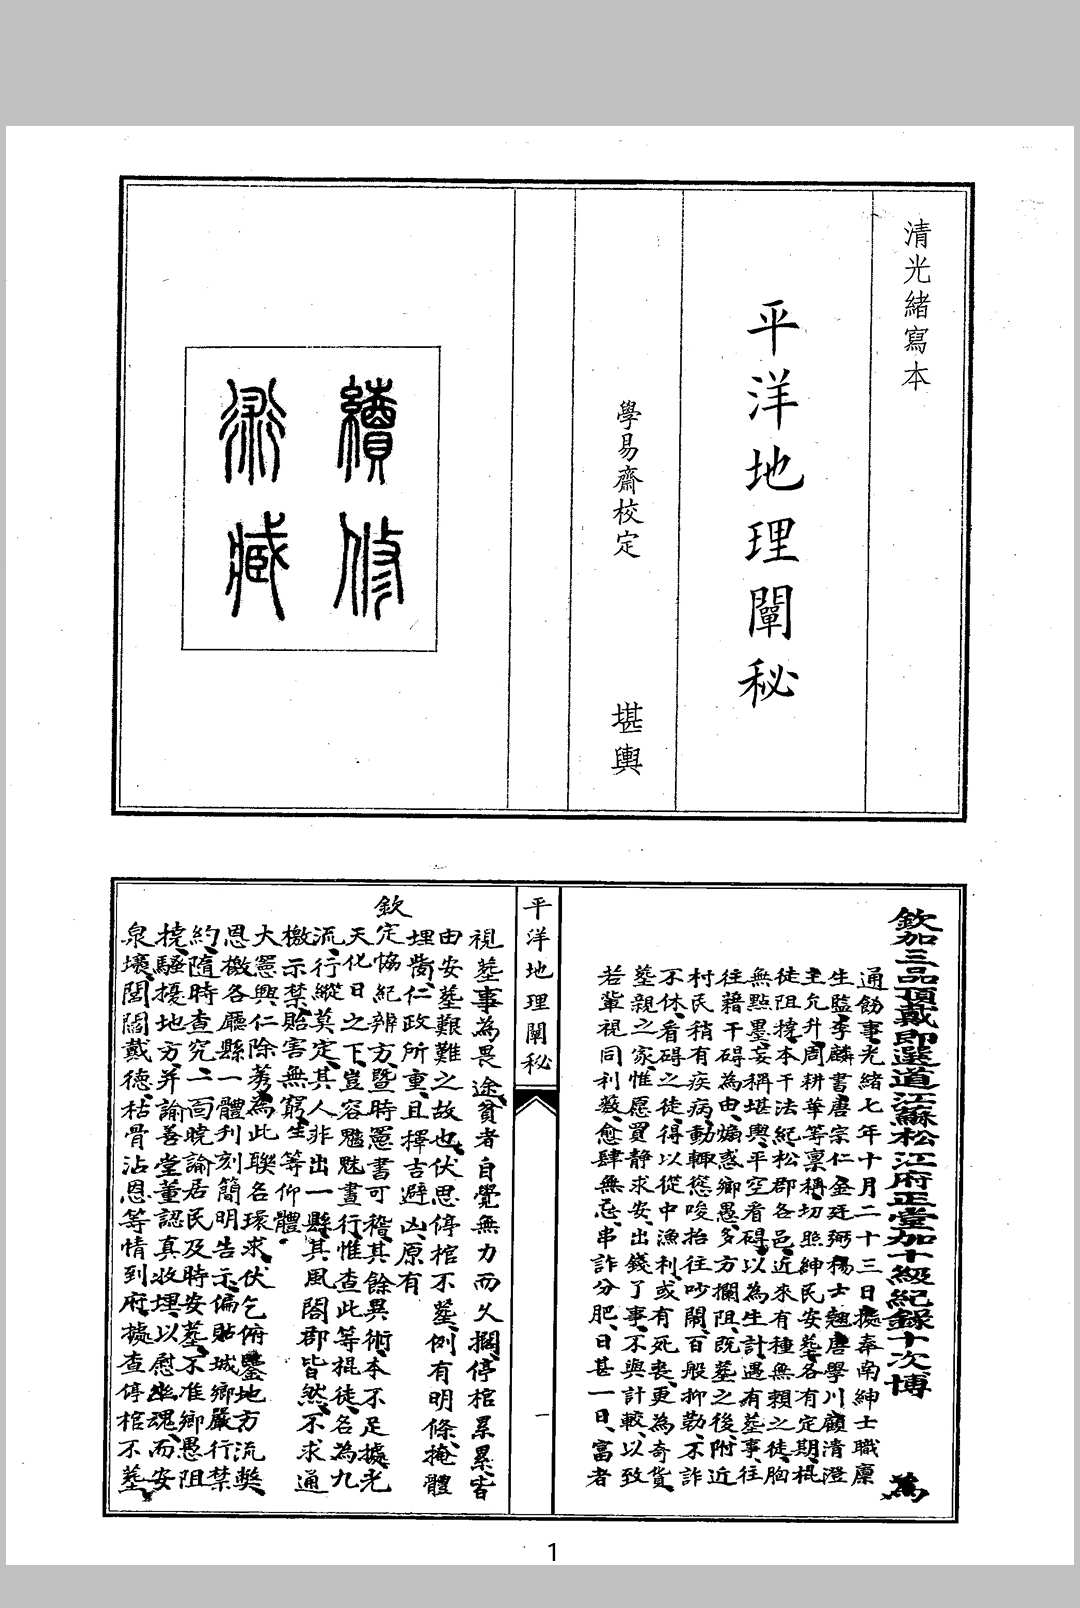 清光緒寫本
平洋地理闡秘
學易齋校定　堪輿
續修
術藏
欽加三品頂戴即選道江蘇松江府正堂加十級紀錄十次博　為
通飭事光緒七年十月二十三日據奉南紳士職廩
生監李麟書唐宗仁金廷弼楊士翹唐學川顧清澄
主允升周耕華等稟稱切照紳民安葬各有定期棍
徒阻撓本干法紀松郡各邑近來有種無賴之徒胸
無點墨妄稱堪輿平空看碍以為生計遇有葬事往
往藉干碍為由煽惑鄉愚多方攔阻既葬之後附近
村民稍有疾病動輒慫唆抬往吵鬧百般抑勒不詐
不休看碍之徒得以從中漁利或有死喪更為奇貨
葬親之家惟愿買静求安出錢了事不與計較以致
若輩視同利藪愈肆無忌串詐分肥日甚一日富者
平洋地理闡秘
一
視葬事為畏途貧者自覺無力而久擱停棺累累皆
由安葬艱難之故也伏思停棺不葬例有明條掩體
埋胔仁政所重且擇吉避凶原有
欽定協紀辨方暨時憲書可稽其餘異術本不足據光
天化日之下豈容魑魅晝行惟查此等棍徒名為九
流行縱莫定其人非出一縣其風閤郡皆然不求通
檄示禁貽害無窮生等仰體
大憲興仁除莠為此聯名環求伏乞俯鑒地方流獘
恩檄各廳縣一體刊刻簡明告示偏貼城鄉嚴行禁
約隨時查究一面曉諭居民及時安葬不准鄉愚阻
撓騷擾地方并諭善堂董認真收埋以慰幽魂而安
泉壤閭閻戴德枯骨沾恩等情到府據查停棺不葬
1